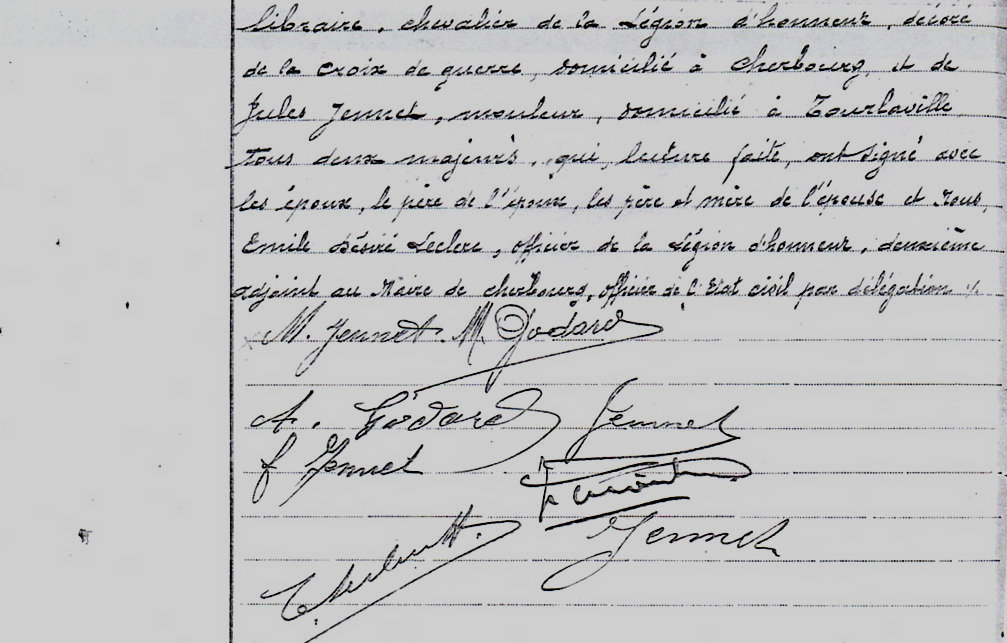 libraire, chevalier de la Légion d'honneur, décoré
de la croix de guerre, domicilié à Cherbourg, et de
Jules Jennet, mouleur, domicilié à Tourlaville,
tous deux majeurs, qui, lecture faite, ont signé avec
les époux, le père de l'époux, les père et mère de l'épouse et Nous,
Emile Désiré Leclerc, officier de la Légion d'honneur, deuxième
adjoint au Maire de Cherbourg, officier de l'Etat civil par délégation ./.
M. Jennet. M. Godard
A. Godard Jennet
f Jennet
Jennet